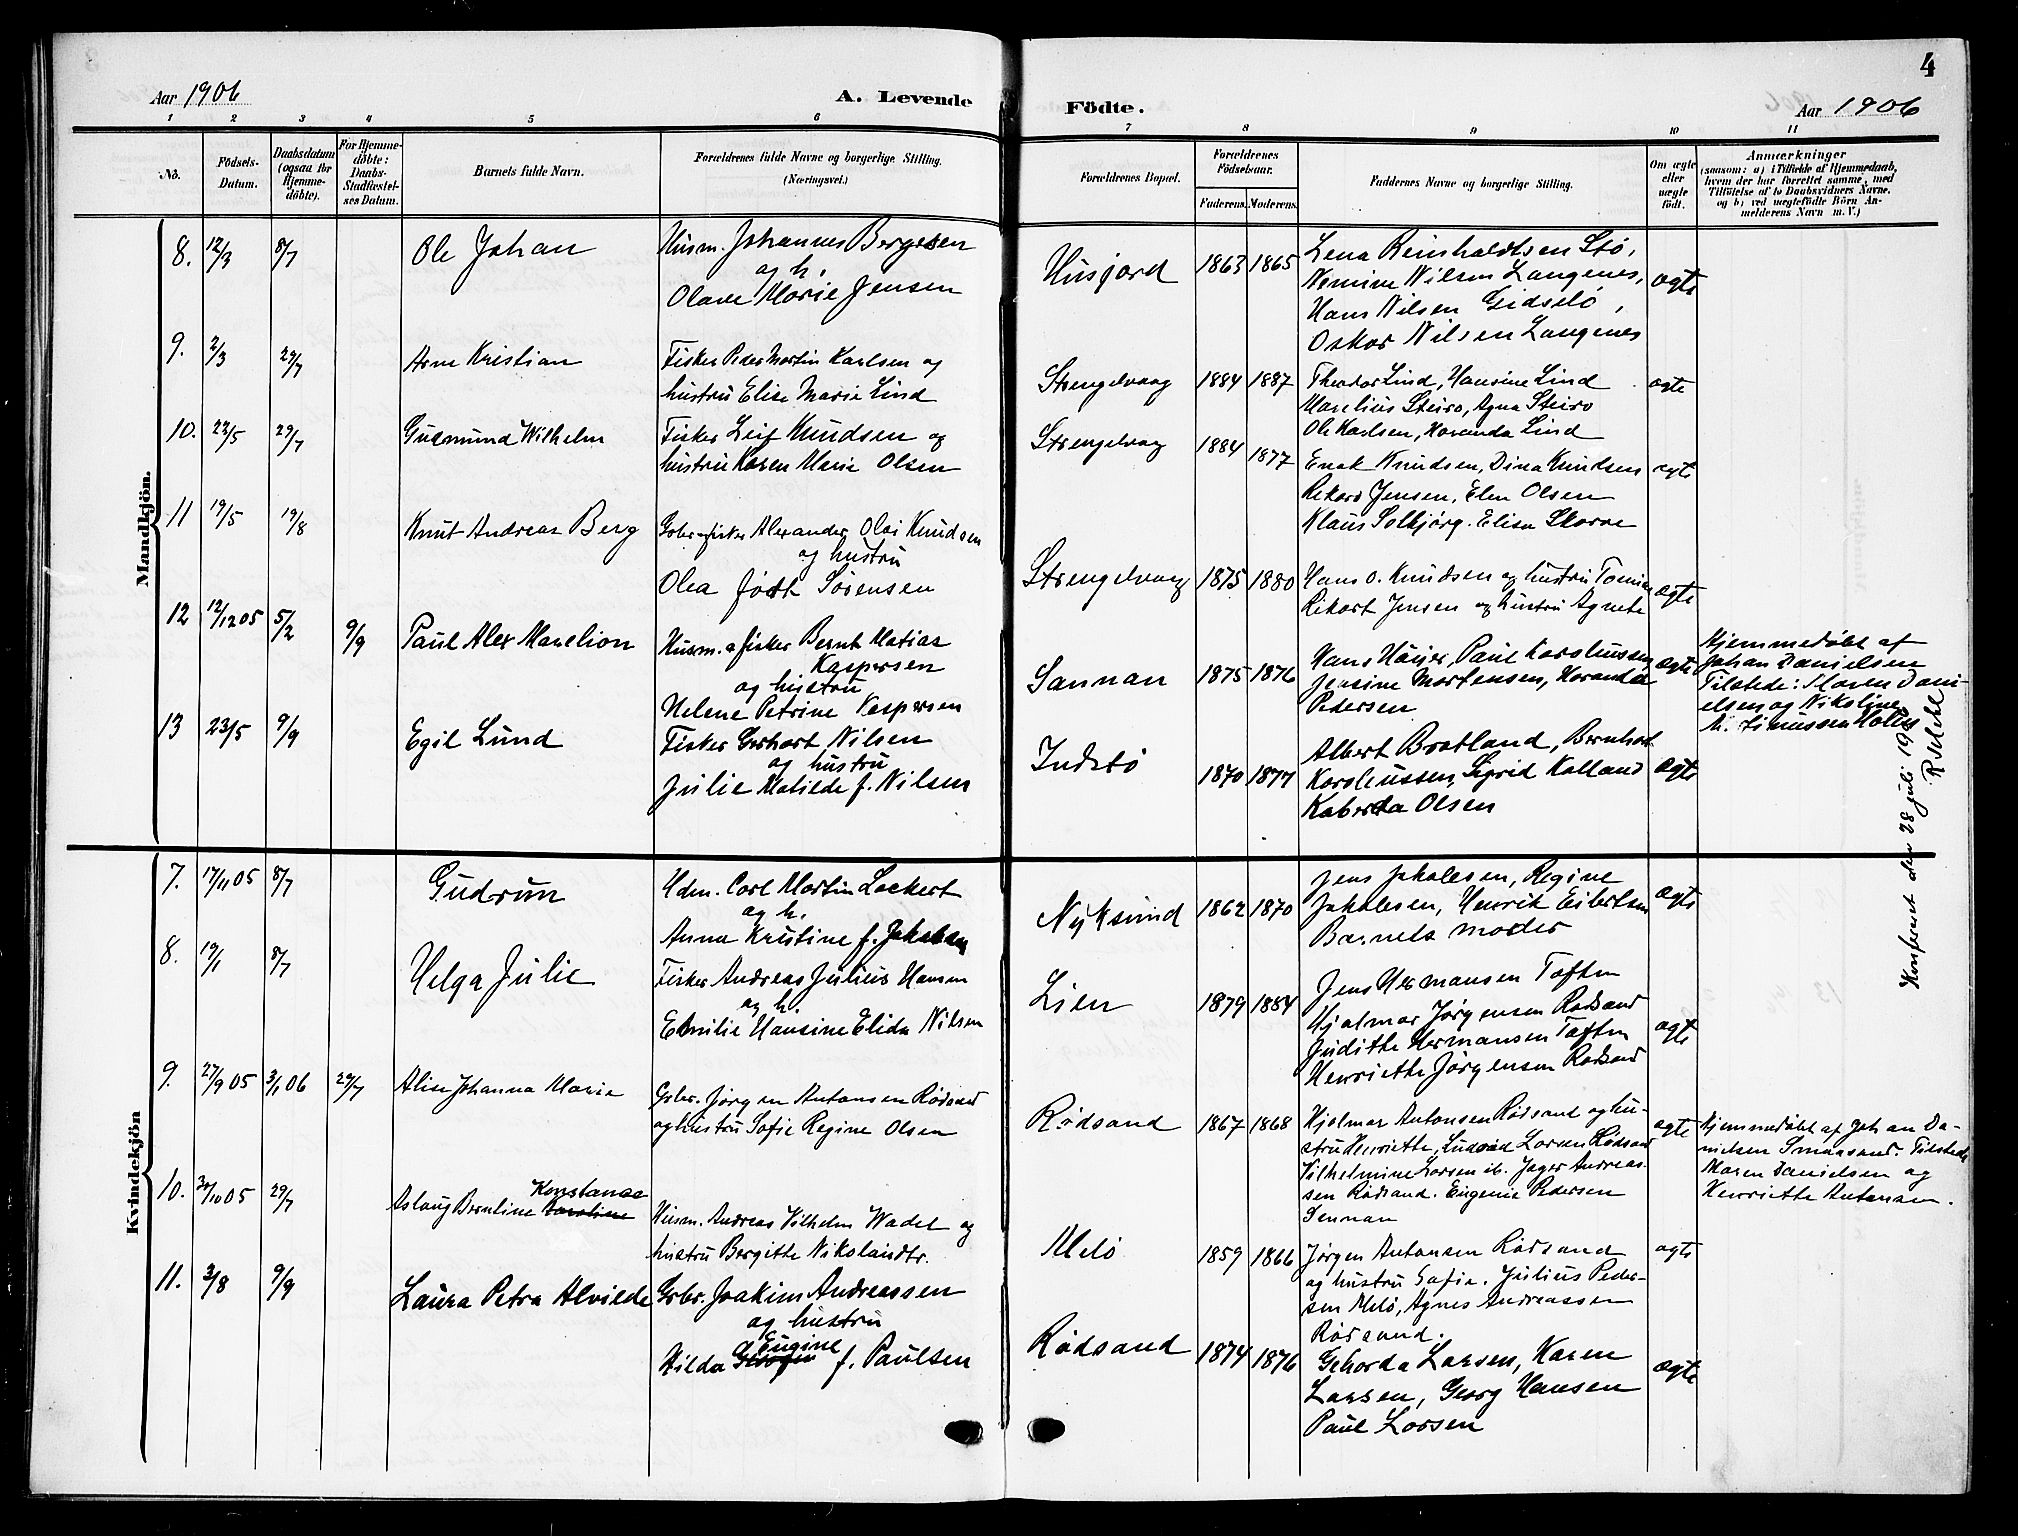 4
Aar 1906
A. Levende
Födte.
Aar 1906
1 2 3 4 5 6 7 8 9 10 11
No.
Födsels-
Datum.
Daabsdatum
(ogsaa for
Hjemme-
döbte).
For Hjemme-
döbte:
Daabs-
Stadfæstel-
ses Datum.
Barnets fulde Navn.
Forældrenes fulde Navne og borgerlige Stilling.
(Næringsvei.)
Forældrenes Bopæl.
Forældrenes
Födselsaar.
Faderens. Moderens.
Faddernes Navne og borgerlige Stilling.
Om ægte
eller
uægte
födt.
Anmærkninger
(saasom: a) i Tilfælde af Hjemmedaab,
hvem der har forrettet samme, med
Tilföielse af to Daabsvidners Navne,
og b) ved uægtefödte Börn An-
melderens Navn m. V.)
Mandkjön.
8. 12/3 8/7 Ole Johan
Husm. Johannes Bergesen
og h.
Olave Marie Jensen
Husjord 1863 1865
Lena Reinholdtsen Stø,
Nilsen Langenes,
Hans Nilsen Gidslø,
Oskar Nilsen Langenes
ægte
9. 2/3 29/7 Arne Kristian
Fisker Peder Martin Karlsen og
hustru Elise Marie Lind
Strengelvaag 1884 1887
Theodor Lind, Hansine Lind
Marelius Steiro, Agna Steiro
Ole Karlsen, Haranda Lind
ægte
10. 22/5 29/7 Gudmund Wilhelm
Fisker Leif Knudsen og
hustru Karen Marie Olsen
Strengelvaag 1884 1877
Enok Knudsen, Dina Knudsen
Rikard Jensen, Elen Olsen
Klaus Solbjørg. Elisa Skorve
ægte
11 19/5 19/8 Knut Andreas Berg
Grbr. og fisker Alexander Olai Knudsen
og hustru
Olea født Sørensen
Strengelvaag 1875 1880
Hans O. Knudsen og hustru Tomine
Rikart Jensen og hustru Agnete
ægte
12 12/12 05 5/2 9/9 Paul Alex Marelion
Husm. a fisker Bernt Matias
Kaspersen
og hustru
Helene Petrine Kaspersen
Sannan 1875 1876
Hans Høier, Paul Karoliussen,
Jensine Mortensen, Haranda
Pedersen
ægte
Hjemmedøbt af
Johan Danielsen
Tilstede: Maren Dani-
elsen og Nikoline
13 23/5 9/9 Egil Lund
Fisker Gerhart Nilsen
og hustru
Julie Matilde f. Nilsen
Indstø 1870 1877
Albert Bratland, Bernhart
Karoliussen, Sigrid Kalland
Olsen
ægte
Konfereret den 28 juli 19
Kvindekjön
7. 17/11 05 8/7 Gudrun
Hdm. Carl Martin Lockert
og h.
Anna Kristine f. Jakobsen
Nyksund 1862 1870
Jens Jakobsen, Regine
Jakobsen, Henrik Eilertsen
Barnets moder
ægte
8. 19/1 8/7 Helga Julie
Fisker Andreas Julius Hansen
og h.
Emilie Hansine Elida Nilsen
Lien 1879 1884
Jens Hermansen Toften
Hjalmar Jørgensen Rødsand
Judithe Hermansen Toften
Henriethe Jørgensen Rødsand
ægte
9. 27/9 05 3/1 06 29/7 Alise Johanna Marie
Grbr. Jørgen Antonsen Rødsand
og hustru Sofie Regine Olsen
Rødsand 1867 1868
Hjelmar Antonsen Rødsand og hu-
stru Henriette, Ludvid Larsen Rødsand
Vilhelmine Larsen ib. Jager Andreas-
sen Rødsand. Eugenie Pedersen
Sennan
ægte
Hjemmedøbt af Johan Da-
nielsen Smaasand. Tilstede
Maren Danielsen og
Henriette Antonsen.
10. 30/10 05 29/7 Konstanse
Aslaug Berntine Karoline
Husm. Andreas Vilhelm Wadel og
hustru Bergitte Nikolaidtr.
Melø 1859 1866
Jørgen Antonsen Rødsand
og hustru Sofie. Julius Peder-
sen Melø, Agnes Andreassen
Rødsand.
ægte
11. 3/8 9/9 Laura Petra Alvilde
Grbr. Joakim Andreassen
og hustru
Eugine
Hilda f. Paulsen
Rødsand 1874 1876
Gehorda Larsen, Karen
Larsen, Georg Hansen
Paul Larsen
ægte